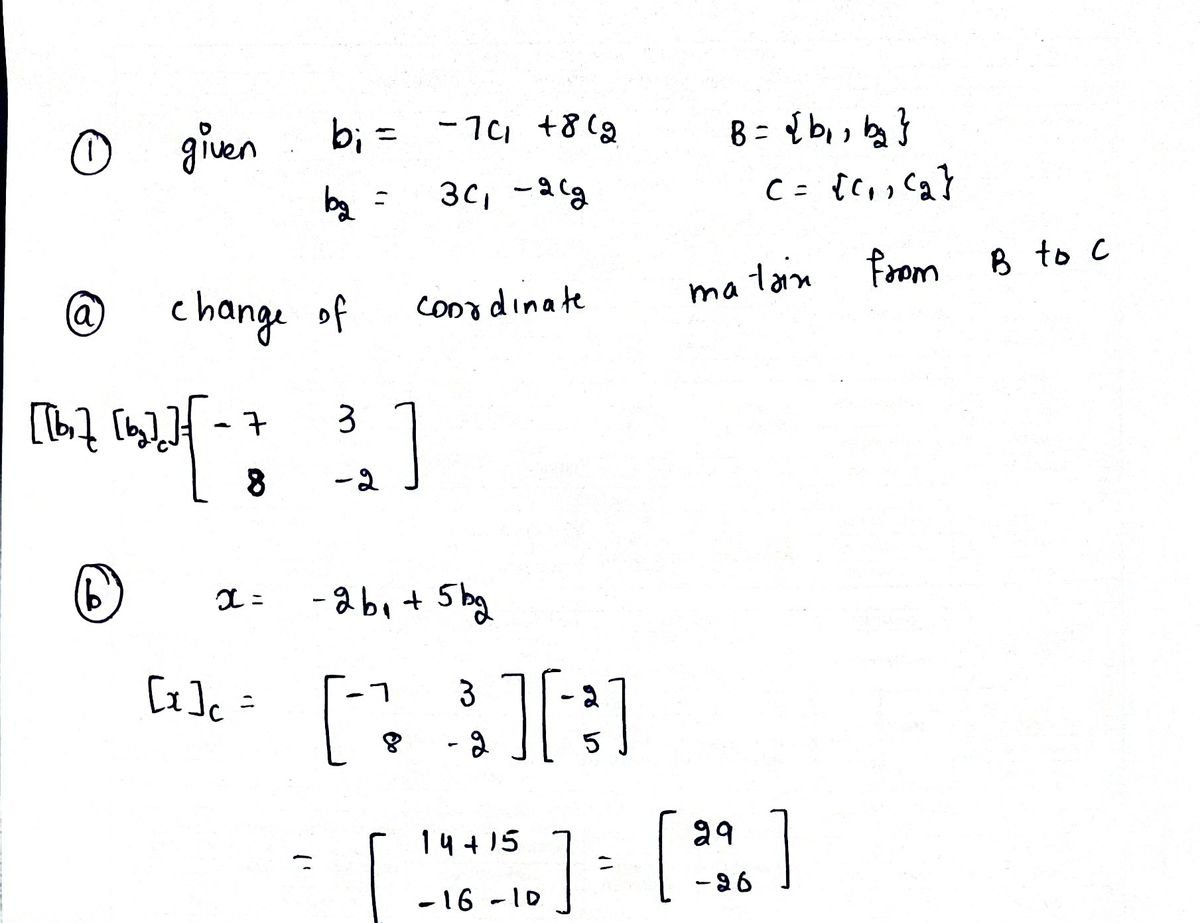 ① given b₁ = -7c₁ + 8c₂ B = {b₁, b₂}
b₂ = 3c₁ - 2c₂ C = {c₁, c₂}
ⓐ change of coordinate matrix from B to C
[[b₁]c [b₂]c] = [ -7 3
8 -2 ]
ⓑ x = -2b₁ + 5b₂
[x]c = [ -7 3 ] [ -2 ]
8 -2 5
= [ 14+15 ] = [ 29 ]
-16 -10 -26